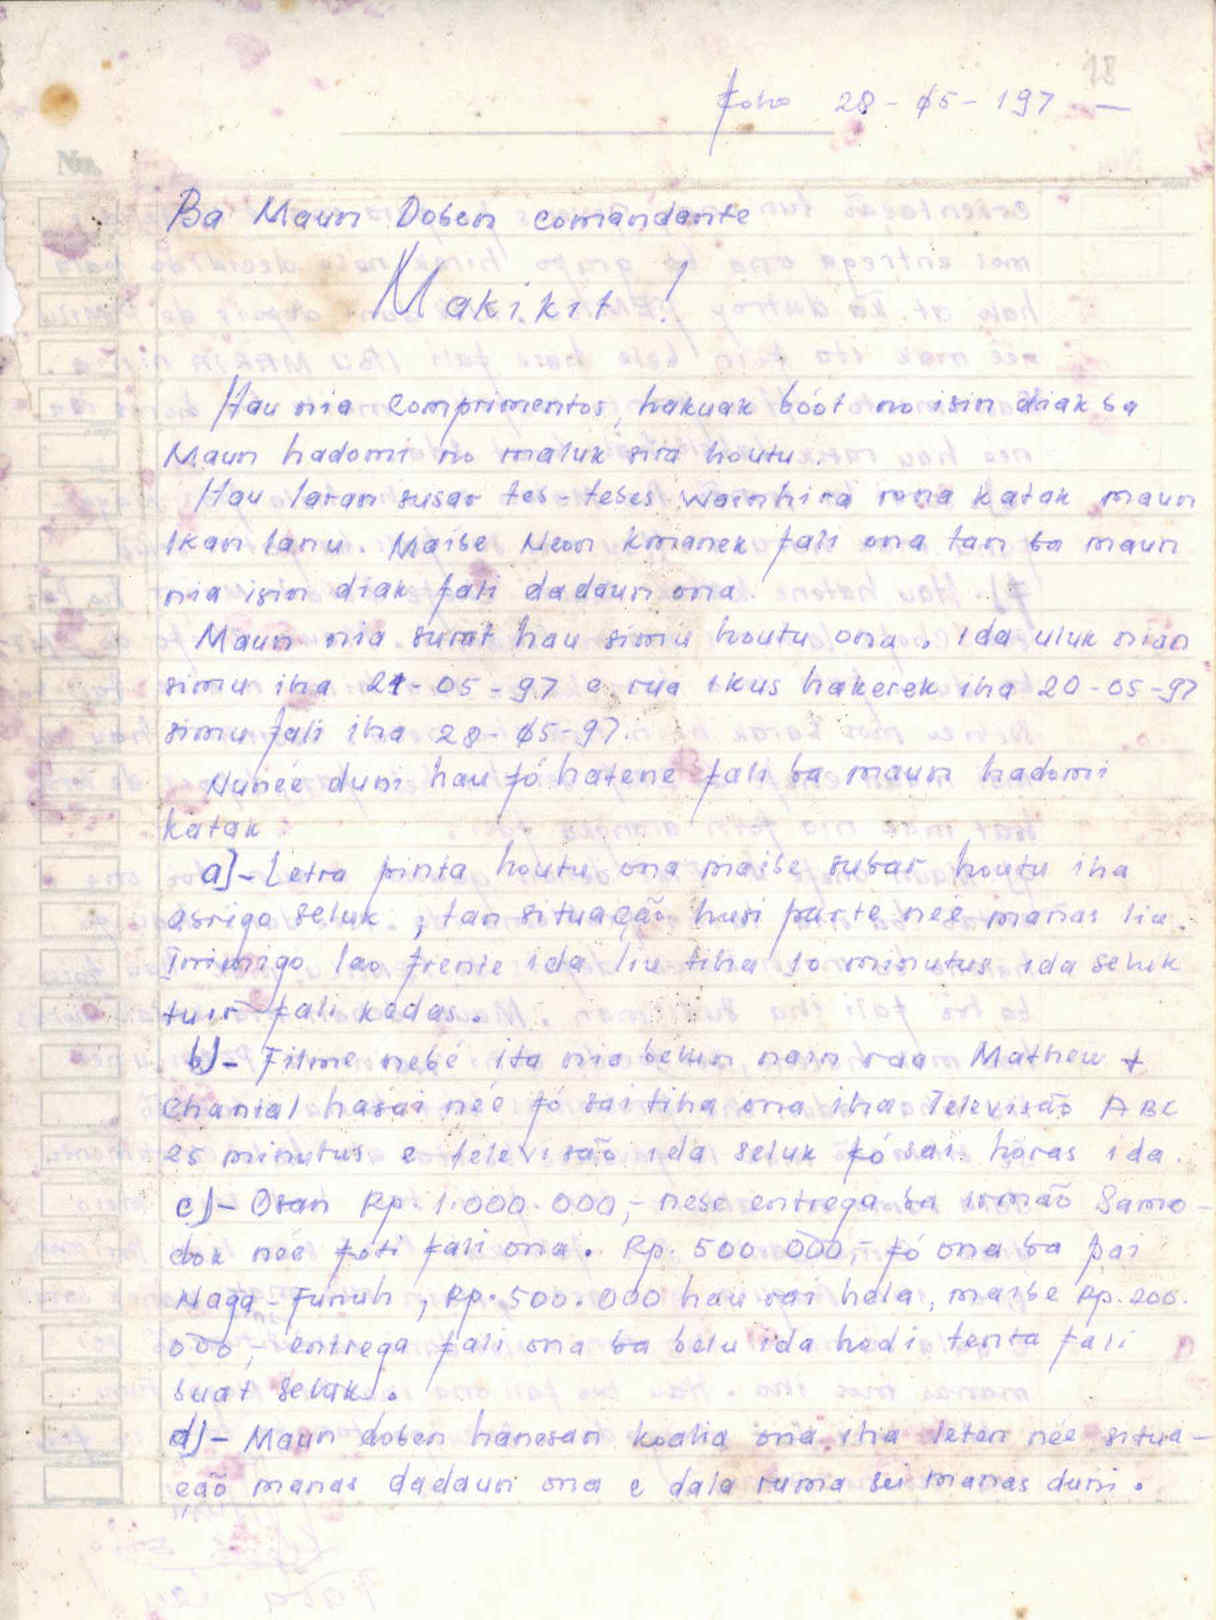 18
Foho 28-05-197 -
No.
Ba Maun Doben comandante
Makikit !
Hau nia Comprimentos, hakuak bóot no isin diak ba
Maun hadomi no maluk sira houtu.
Hau laran susar teb-tebes wainhira rona katak maun
Ikan lanu. Maibe Neon kmanek fali ona tan ba maun
nia isin diak fali dadaun ona.
Maun nia surat hau simu houtu ona. Ida uluk nian
simu iha 21-05-97 e rua ikus hakerek iha 20-05-97
simu fali iha 28-05-97.
Nuneé duni hau fó hatene fali ba maun hadomi
katak
a)- Letra pinta houtu ona maibe subar houtu iha
abrigo seluk, tan situação husi parte neé manas liu.
Inimigo lao frenie ida liu tiha 10 minutus ida seluk
tuir fali kedas.
b)- Filme nebé ita nia belun, nain rua Mathew +
Chanial hasai neé fó sai tiha ona iha Televisão ABC
25 minutus e televisão ida seluk fó sai horas ida.
c)- Osan Rp. 1.000.000,- nebe entrega ba irmão Samo-
dok neé foti fali ona. Rp. 500.000,- fó ona ba pai
Naga-Funuh, Rp. 500.000 hau rai hela, maibe Rp. 200.
000,- entrega fali ona ba belu ida hodi tenta fali
buat seluk.
d)- Maun doben hanesan koalia ona iha leten neé situa-
ção manas dadaun ona e dala ruma sei manas duni.